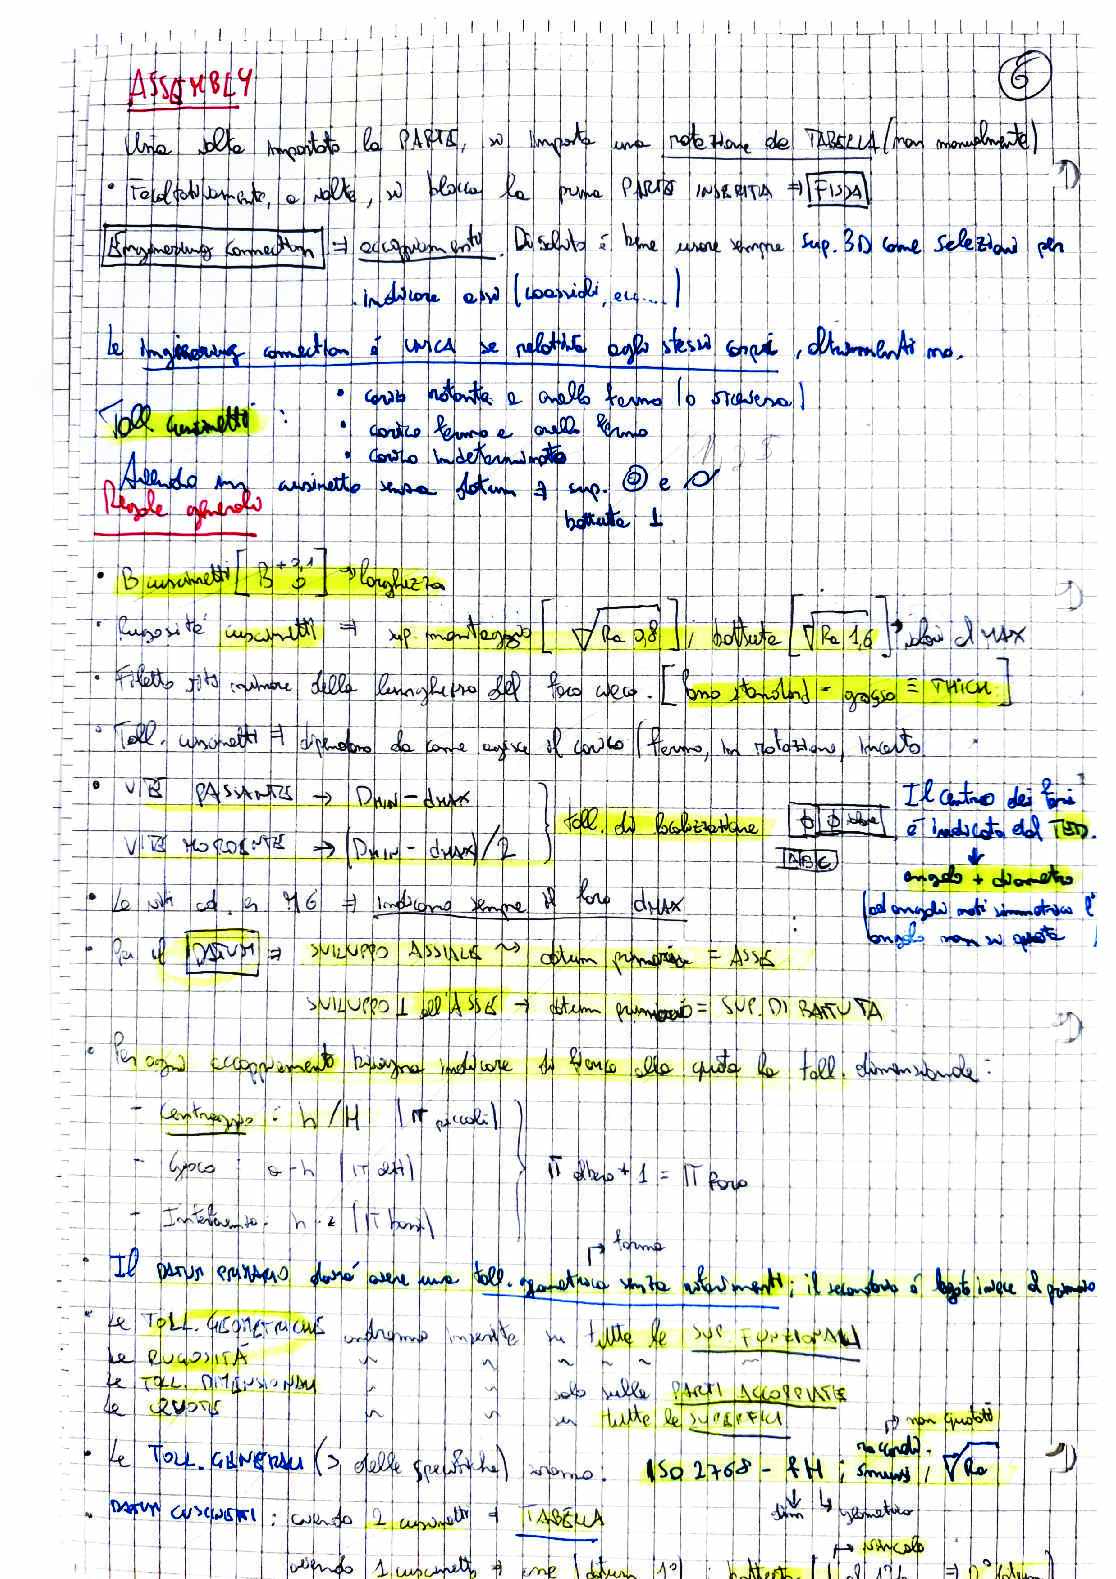 ASSEMBLY
6
Una volta impostato la PARTE, si imposta una rotazione da TABELLA (non manualmente)
• Facoltativamente, a volte, si blocca la prima PARTE INSERITA ⇒ FISSA
Engineering Connection ⇒ accoppiamenti. Di solito è bene usare sempre sup. 3D come selezioni per
indicare assi (coassiali, ecc....)
Le Engineering connection è UNICA se relativa agli stessi corpi, altrimenti no.
Toll cuscinetti :
• carico rotante e anello fermo (o viceversa)
• carico fermo e anello fermo
• carico indeterminato
Avendo un cuscinetto senza datum ⇒ sup. ◎ e ⌭
battuta ⊥
Regole generali
• B cuscinetti [B +0,1 0] → larghezza
• Rugosità cuscinetti ⇒ sup. montaggio [√Ra 0,8], battuta [√Ra 1,6] → valori al MAX
• Filetto minore della lunghezza del foro cieco. [fino standard - grosso ≡ THICK]
• Toll. cuscinetti ⇒ dipendono da come agisce il carico (fermo, in rotazione, incerto
• VITE PASSANTE → DMIN - dMAX
VITE MORDENTE → (DMIN - dMAX)/2
toll. di localizzazione
A B C
Il centro dei fori
è indicato dal TED.
↓
angolo + diametro
(ad angoli noti simmetrico l'
angolo non si quota)
• Le viti ad es M6 ⇒ indicano sempre il foro dMAX
• Per il DATUM ⇒ SVILUPPO ASSIALE → datum primario = ASSE
SVILUPPO ⊥ all'ASSE → datum primario = SUP. DI BATTUTA
• Per ogni accoppiamento bisogna indicare di fianco alla quota la toll. dimensionale:
- Centraggio : h/H (IT piccoli)
- Gioco : a-h (IT alti)
- Interferenza : n-z (IT bassi)
IT albero + 1 = IT foro
→ forma
• Il DATUM PRIMARIO dovrà avere una toll. geometrica senza riferimenti; il secondario è legato invece al primario
• Le TOLL. GEOMETRICHE andranno inserite su tutte le SUP. FUNZIONALI
Le RUGOSITÀ " " " " " "
Le TOLL. DIMENSIONALI " " solo sulle PARTI ACCOPPIATE
Le QUOTE " " su tutte le SUPERFICI
→ non quotati
• Le TOLL. GENERALI (> delle specifiche) sono: ISO 2768 - fH ; raccordi. smussi, √Ra
dim geometrico
• DATUM CUSCINETTI : avendo 2 cuscinetti ⇒ TABELLA
→ vincolo
avendo 1 cuscinetto ⇒ asse (datum 1°) battuta